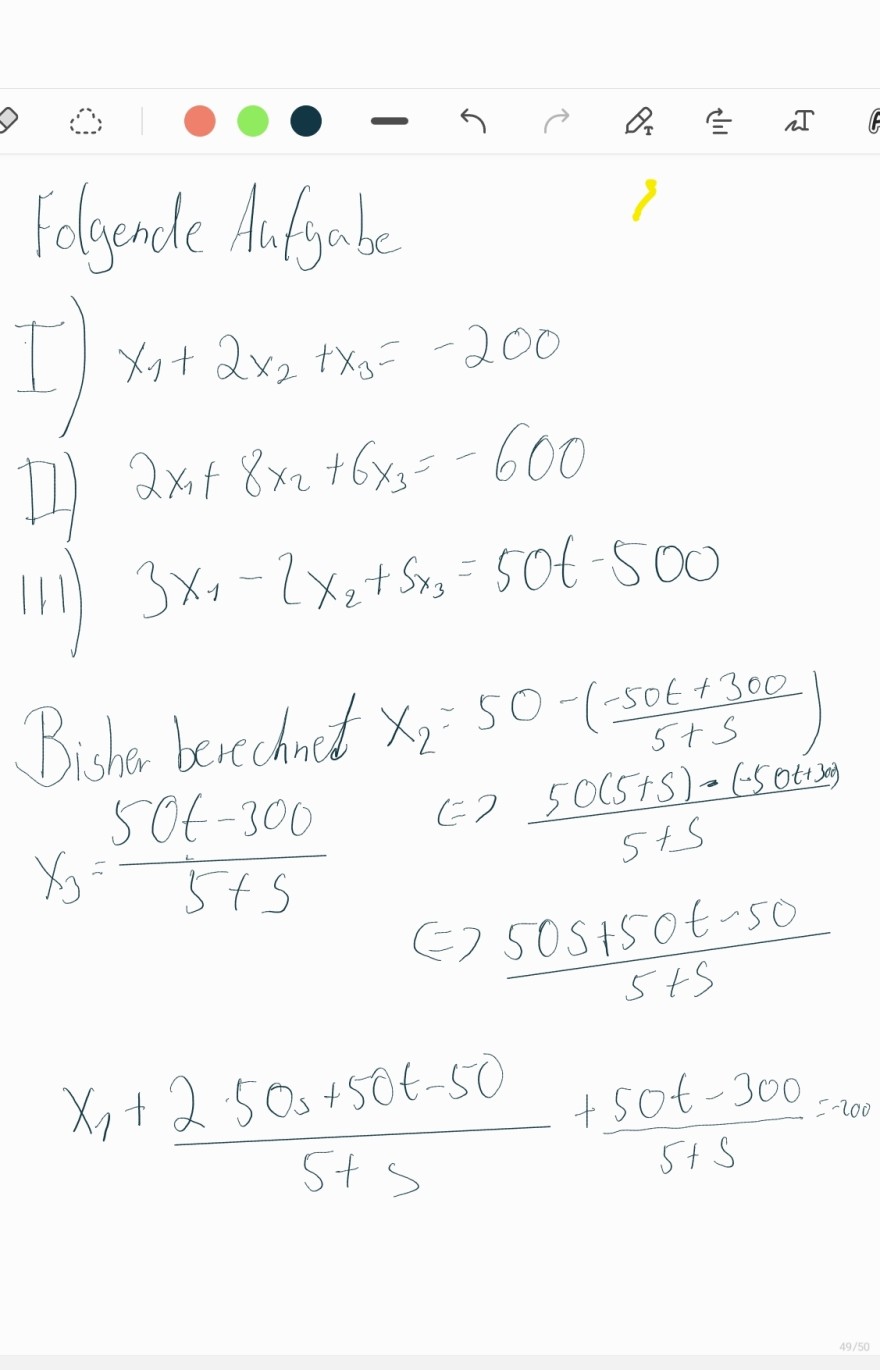 Folgende Aufgabe
I) x₁ + 2x₂ + x₃ = -200
II) 2x₁ + 8x₂ + 6x₃ = -600
III) 3x₁ - 2x₂ + sx₃ = 50t - 500
Bisher berechnet x₂ = 50 - ((-50t + 300)/(5 + s))
x₃ = (50t - 300)/(5 + s)
⇔ (50(5+s) - (-50t+300))/(5+s)
⇔ (50s + 50t - 50)/(5+s)
x₁ + (2·50s + 50t - 50)/(5 + s) + (50t - 300)/(5 + s) = -200
49/50